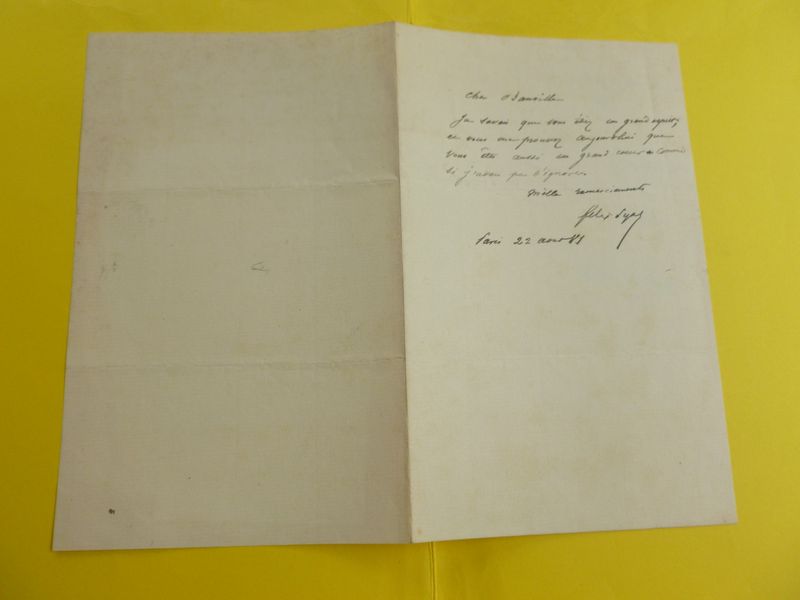 Cher
Je savais que vous étiez un grand esprit,
et vous me prouvez aujourd'hui que
vous êtes aussi un grand coeur comme
si j'avais pu l'ignorer
Mille remerciements
Félix Pyat
Paris 22 aout 81